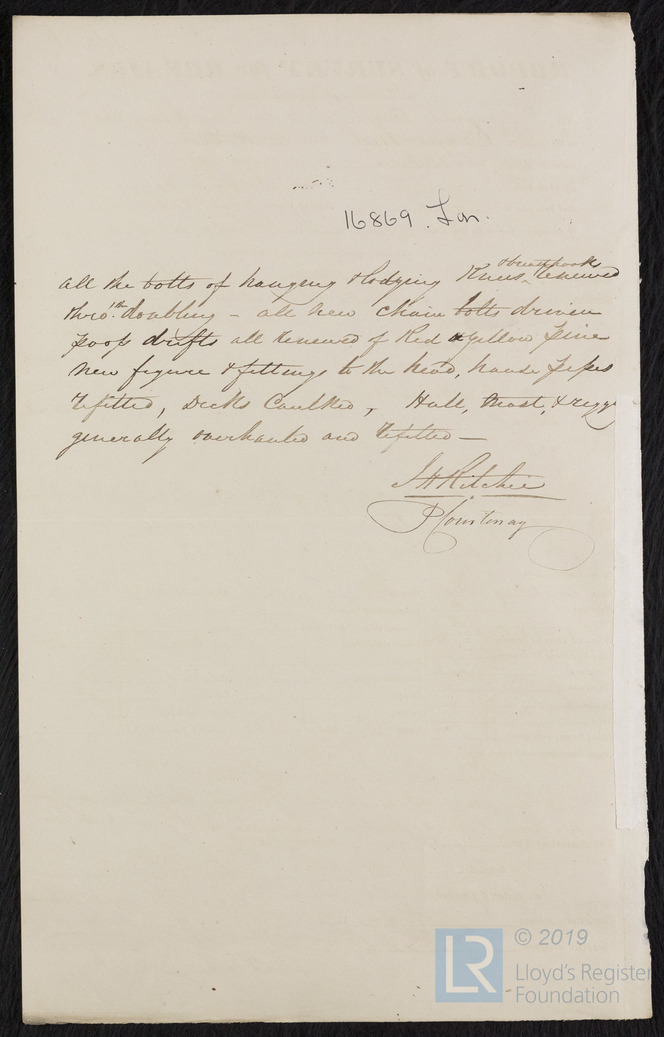 16869. Lon.
& breasthook
all the bolts of hanging & lodging Knees renewed
thro' the doubling - all new chain bolts driven
poop drifts all renewed of Red & yellow pine
New figure & fittings to the head, hause pipes
refitted, Decks Caulked, Hull, Mast, & rigg
generally overhauled and refitted —
J H Ritchie
P Courtenay
LR
© 2019
Lloyd's Register
Foundation